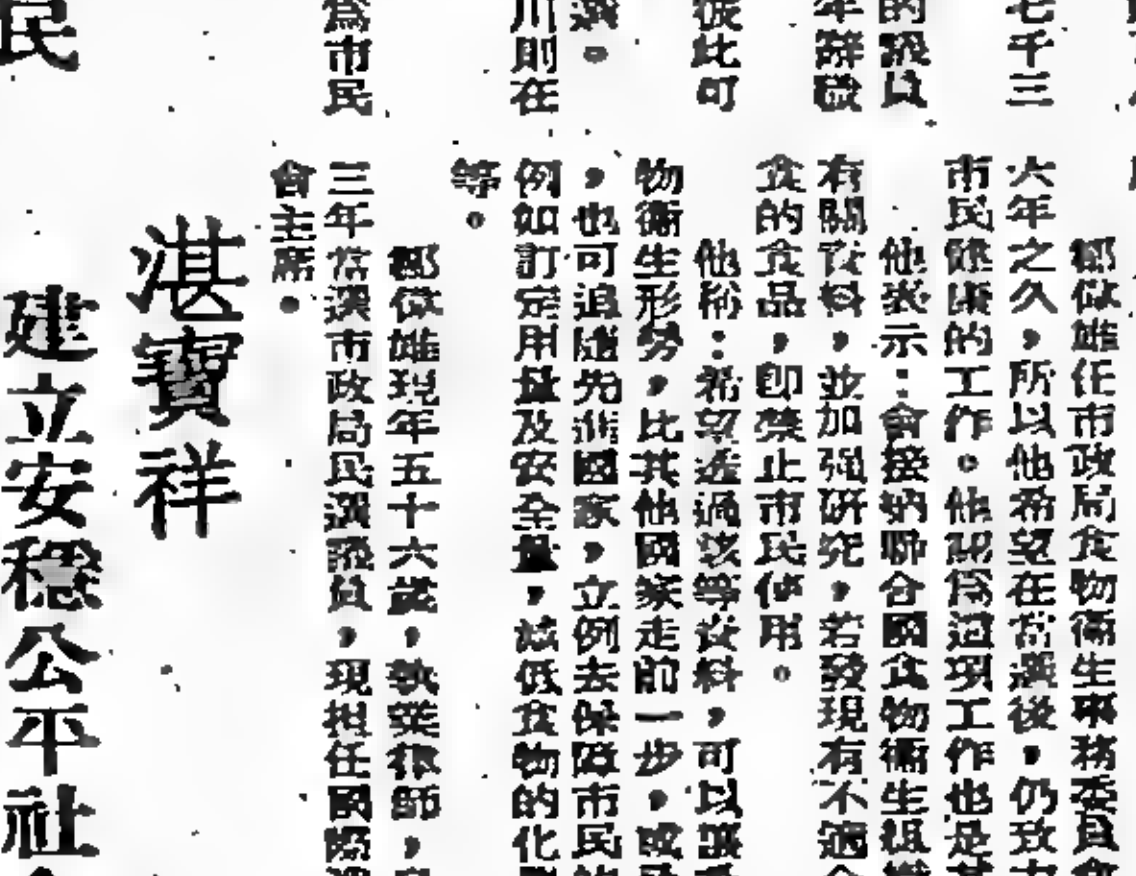 七千三
的議員
年辭職
從此可
選。
川則在
為市民
民
鄒偉雄任市政局食物衞生事務委員會
六年之久，所以他希望在當選後，仍致力
市民健康的工作。他認為這項工作也是其
他表示：會接納聯合國食物衞生組織
有關資料，並加强研究，若發現有不適合
食的食品，卽禁止市民使用。
他稱：希望透過該等資料，可以讓
物衞生形勢，比其他國家走前一步，或
，也可追隨先進國家，立例去保障市民
例如訂定用量及安全量，減低食物的化
等。
鄒偉雄現年五十六歲，執業律師，
三年當選市政局民選議員，現担任國際
會主席。
湛寶祥
建立安穩公平社